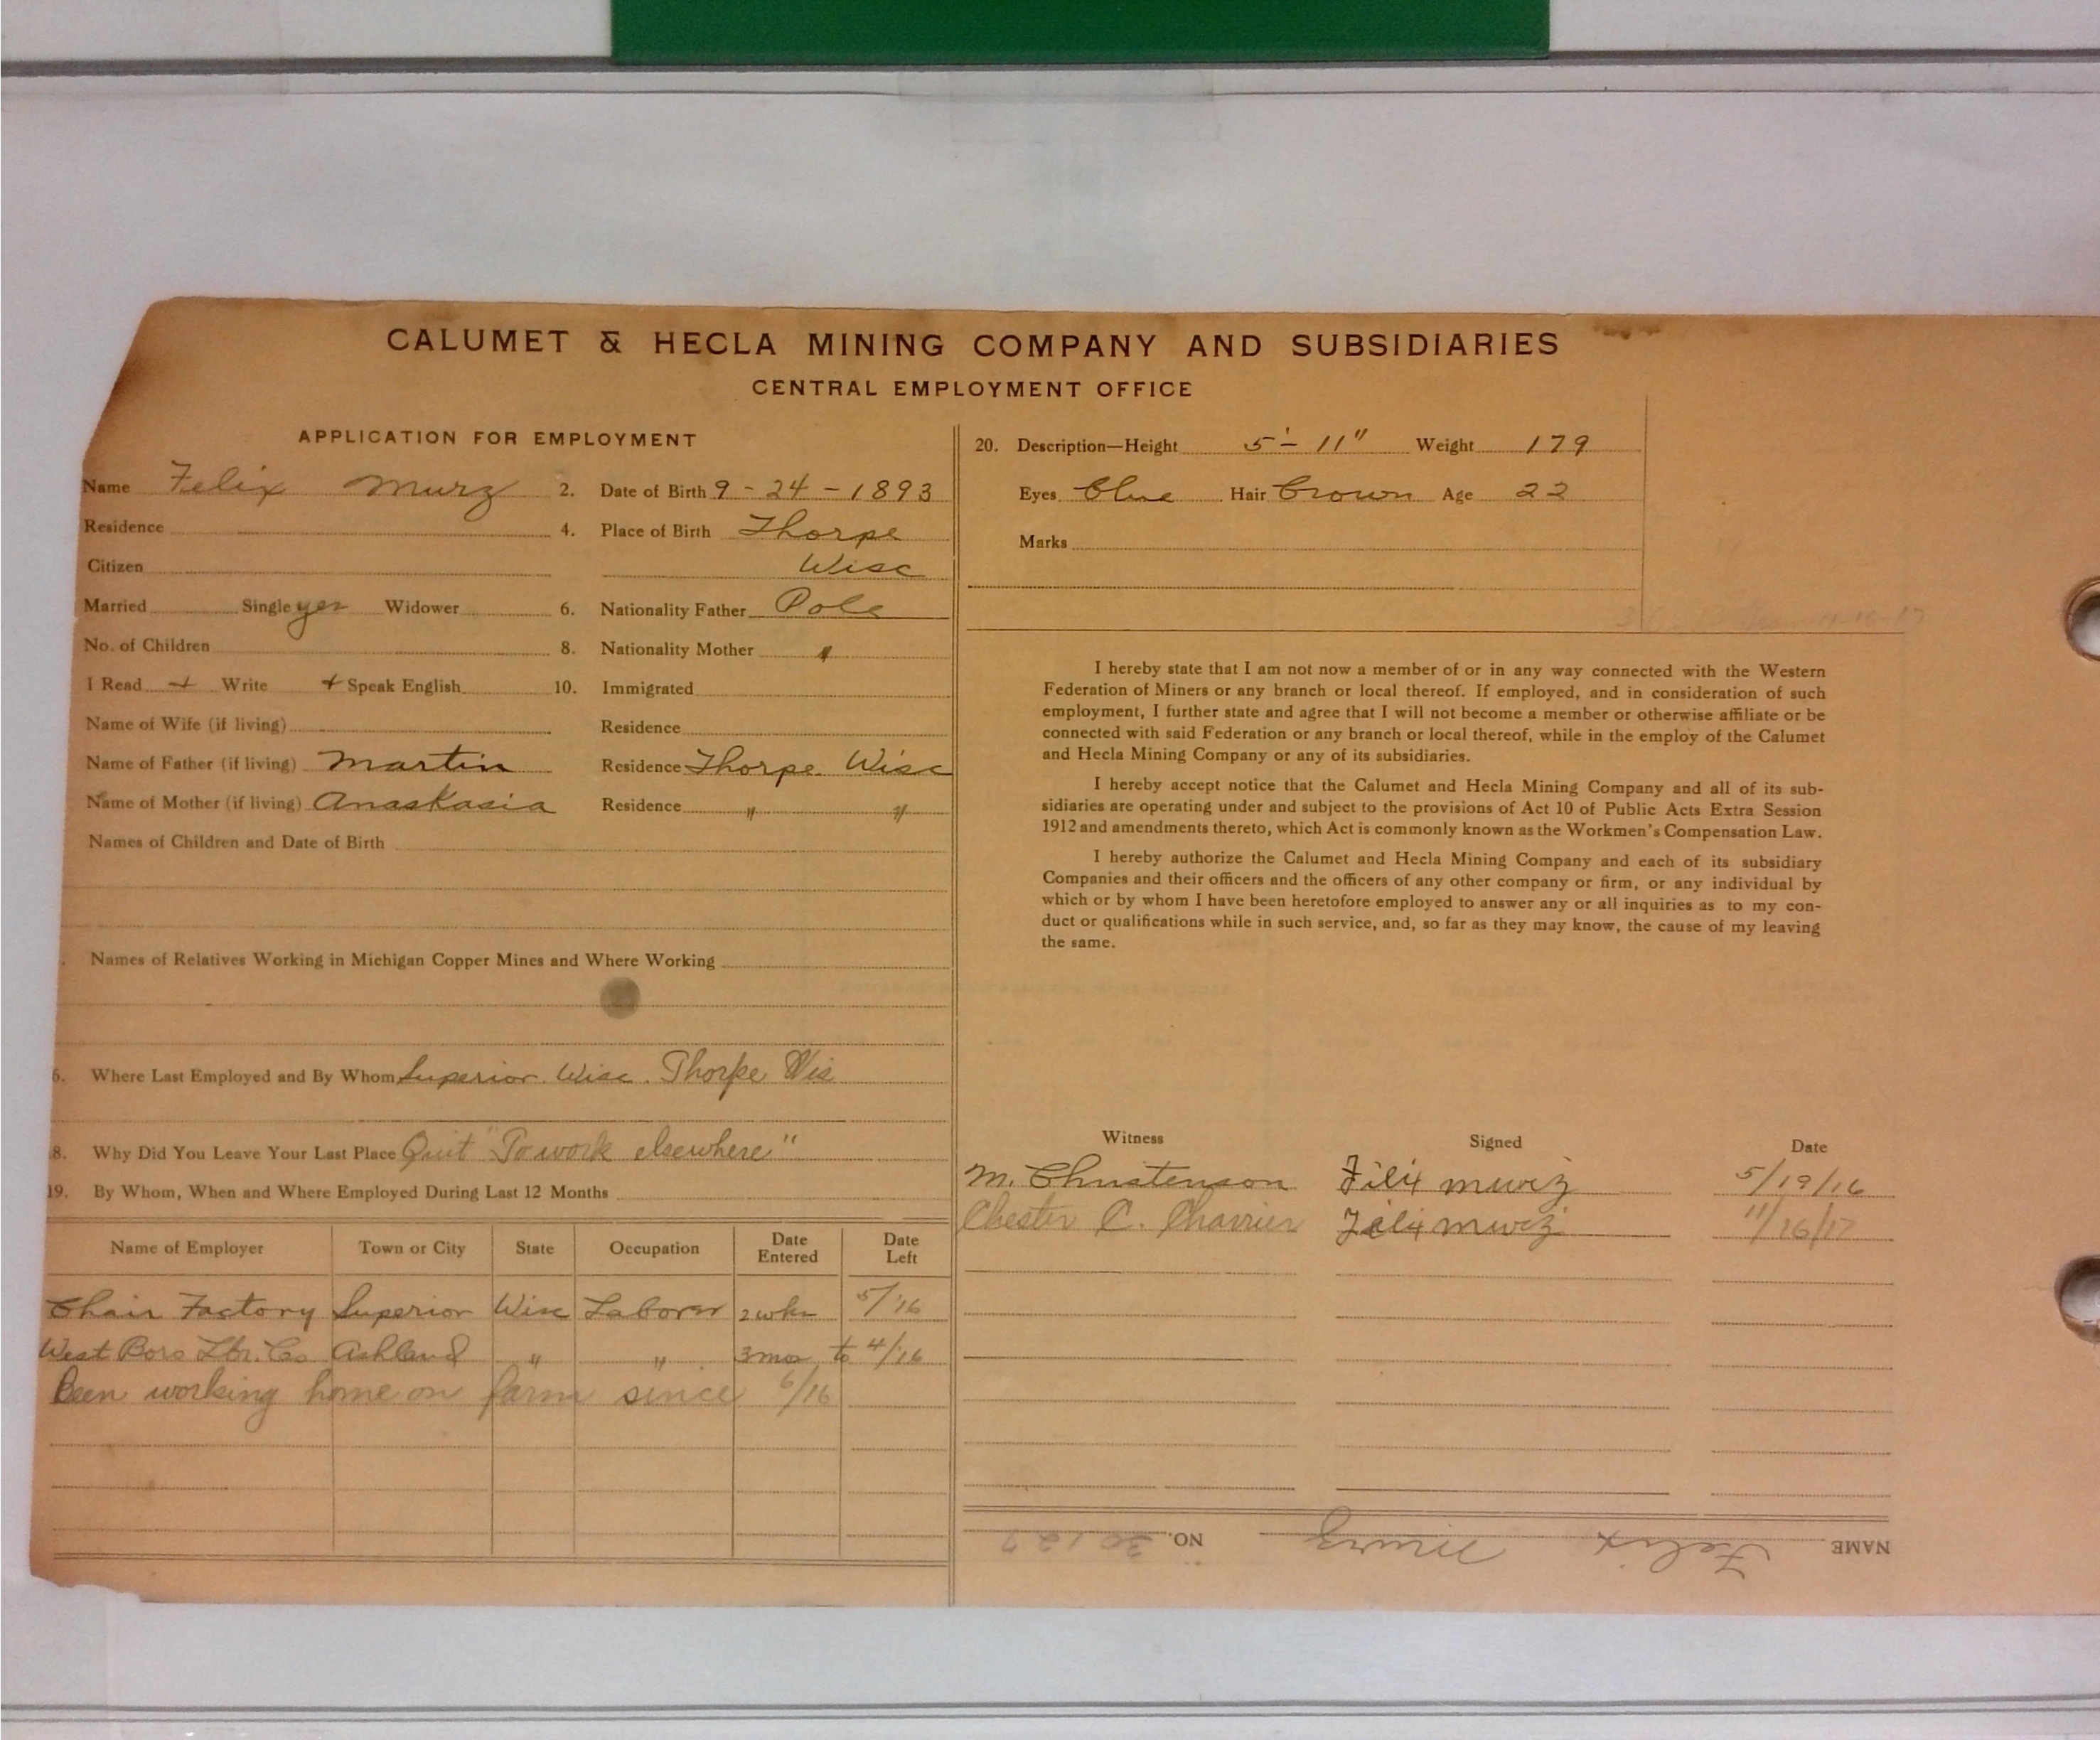 CALUMET & HECLA MINING COMPANY AND SUBSIDIARIES
CENTRAL EMPLOYMENT OFFICE
APPLICATION FOR EMPLOYMENT
Name Felix Murz 2. Date of Birth 9-24-1893
Residence 4. Place of Birth Thorpe
Citizen Wisc
Married Single yes Widower 6. Nationality Father Pole
No. of Children 8. Nationality Mother "
I Read + Write + Speak English 10. Immigrated
Name of Wife (if living) Residence
Name of Father (if living) Martin Residence Thorpe Wisc
Name of Mother (if living) Anaskasia Residence " "
Names of Children and Date of Birth
Names of Relatives Working in Michigan Copper Mines and Where Working
6. Where Last Employed and By Whom Superior. Wisc. Thorpe Wis
8. Why Did You Leave Your Last Place Quit "To work elsewhere"
19. By Whom, When and Where Employed During Last 12 Months
Name of Employer Town or City State Occupation Date Entered Date Left
Chair Factory Superior Wisc Laborer 2 wks 5/'16
West Boro Lbr. Co Ashland " " 3 mos to 4/'16
Been working home on farm since 6/16
20. Description—Height 5'-11" Weight 179
Eyes Blue Hair Brown Age 22
Marks
I hereby state that I am not now a member of or in any way connected with the Western
Federation of Miners or any branch or local thereof. If employed, and in consideration of such
employment, I further state and agree that I will not become a member or otherwise affiliate or be
connected with said Federation or any branch or local thereof, while in the employ of the Calumet
and Hecla Mining Company or any of its subsidiaries.
I hereby accept notice that the Calumet and Hecla Mining Company and all of its sub-
sidiaries are operating under and subject to the provisions of Act 10 of Public Acts Extra Session
1912 and amendments thereto, which Act is commonly known as the Workmen's Compensation Law.
I hereby authorize the Calumet and Hecla Mining Company and each of its subsidiary
Companies and their officers and the officers of any other company or firm, or any individual by
which or by whom I have been heretofore employed to answer any or all inquiries as to my con-
duct or qualifications while in such service, and, so far as they may know, the cause of my leaving
the same.
Witness Signed Date
M. Christenson Filix Murz 5/19/16
Chester C. Charrier Filix Murz 11/16/17
NAME Felix Murz NO. 30127